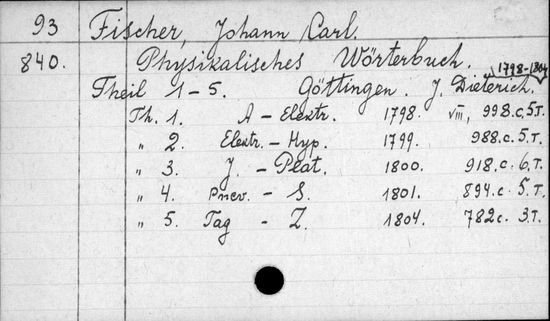 93 Fischer, Johann Carl.
840. Physikalisches Wörterbuch.
1798-1804
Theil 1-5. Göttingen. J. Dieterich.
Th. 1. A - Elextr. 1798. VIII, 998.c. 5.T.
„ 2. Elextr. - Hyp. 1799. 988.c. 5.T.
„ 3. J. - Plat. 1800. 918.c. 6.T.
„ 4. Pnev. - S. 1801. 894.c. 5.T.
„ 5. Tag - Z. 1804. 782c. 3.T.